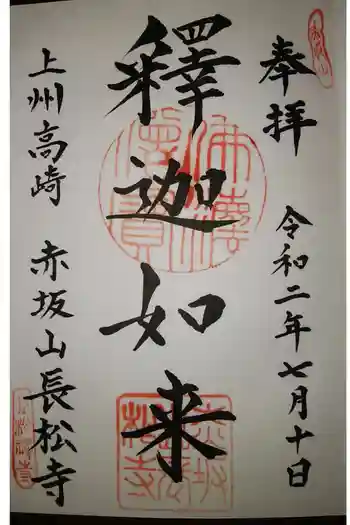 奉拝
令和二年七月十日
釋迦如来
上州高崎 赤坂山長松寺